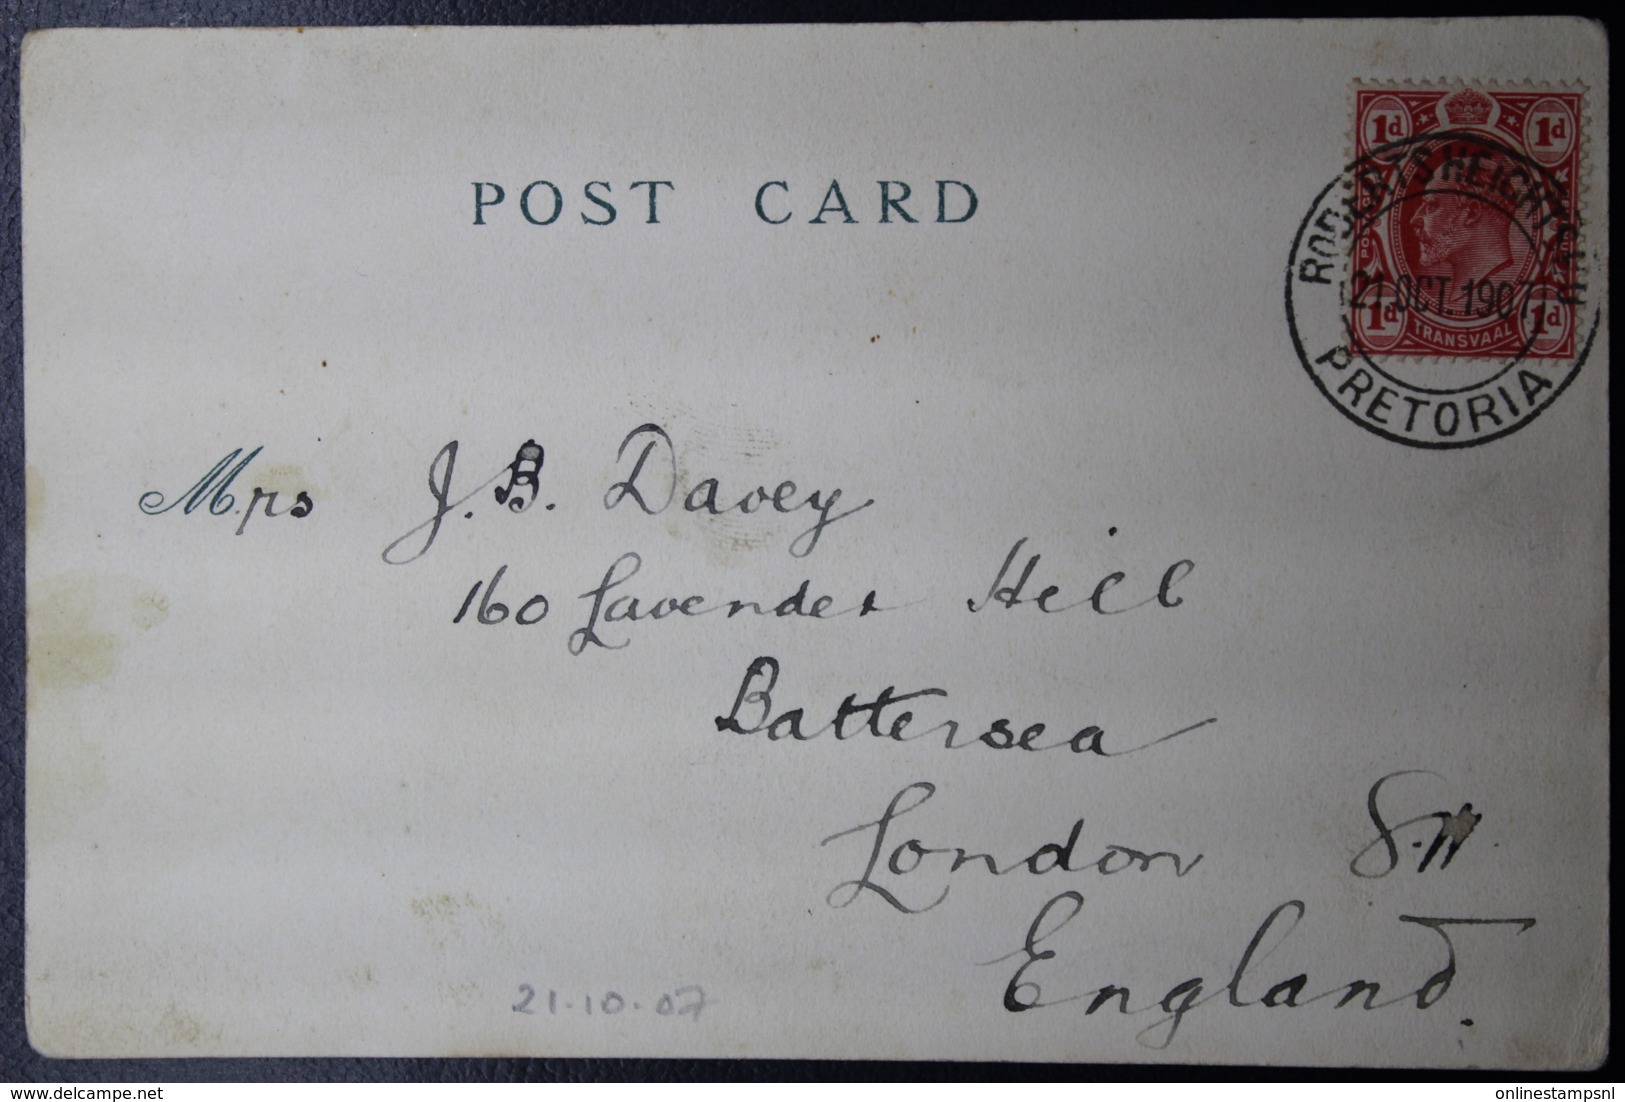 POST CARD
1d 1d
POSTAGE
ROBERTS HEIGHTS
21 OCT. 1907
1d 1d
TRANSVAAL
PRETORIA
Mrs J. B. Davey
160 Lavender Hill
Battersea
London S.W.
England.
21-10-07
www.delcampe.net
onlinestampsnl